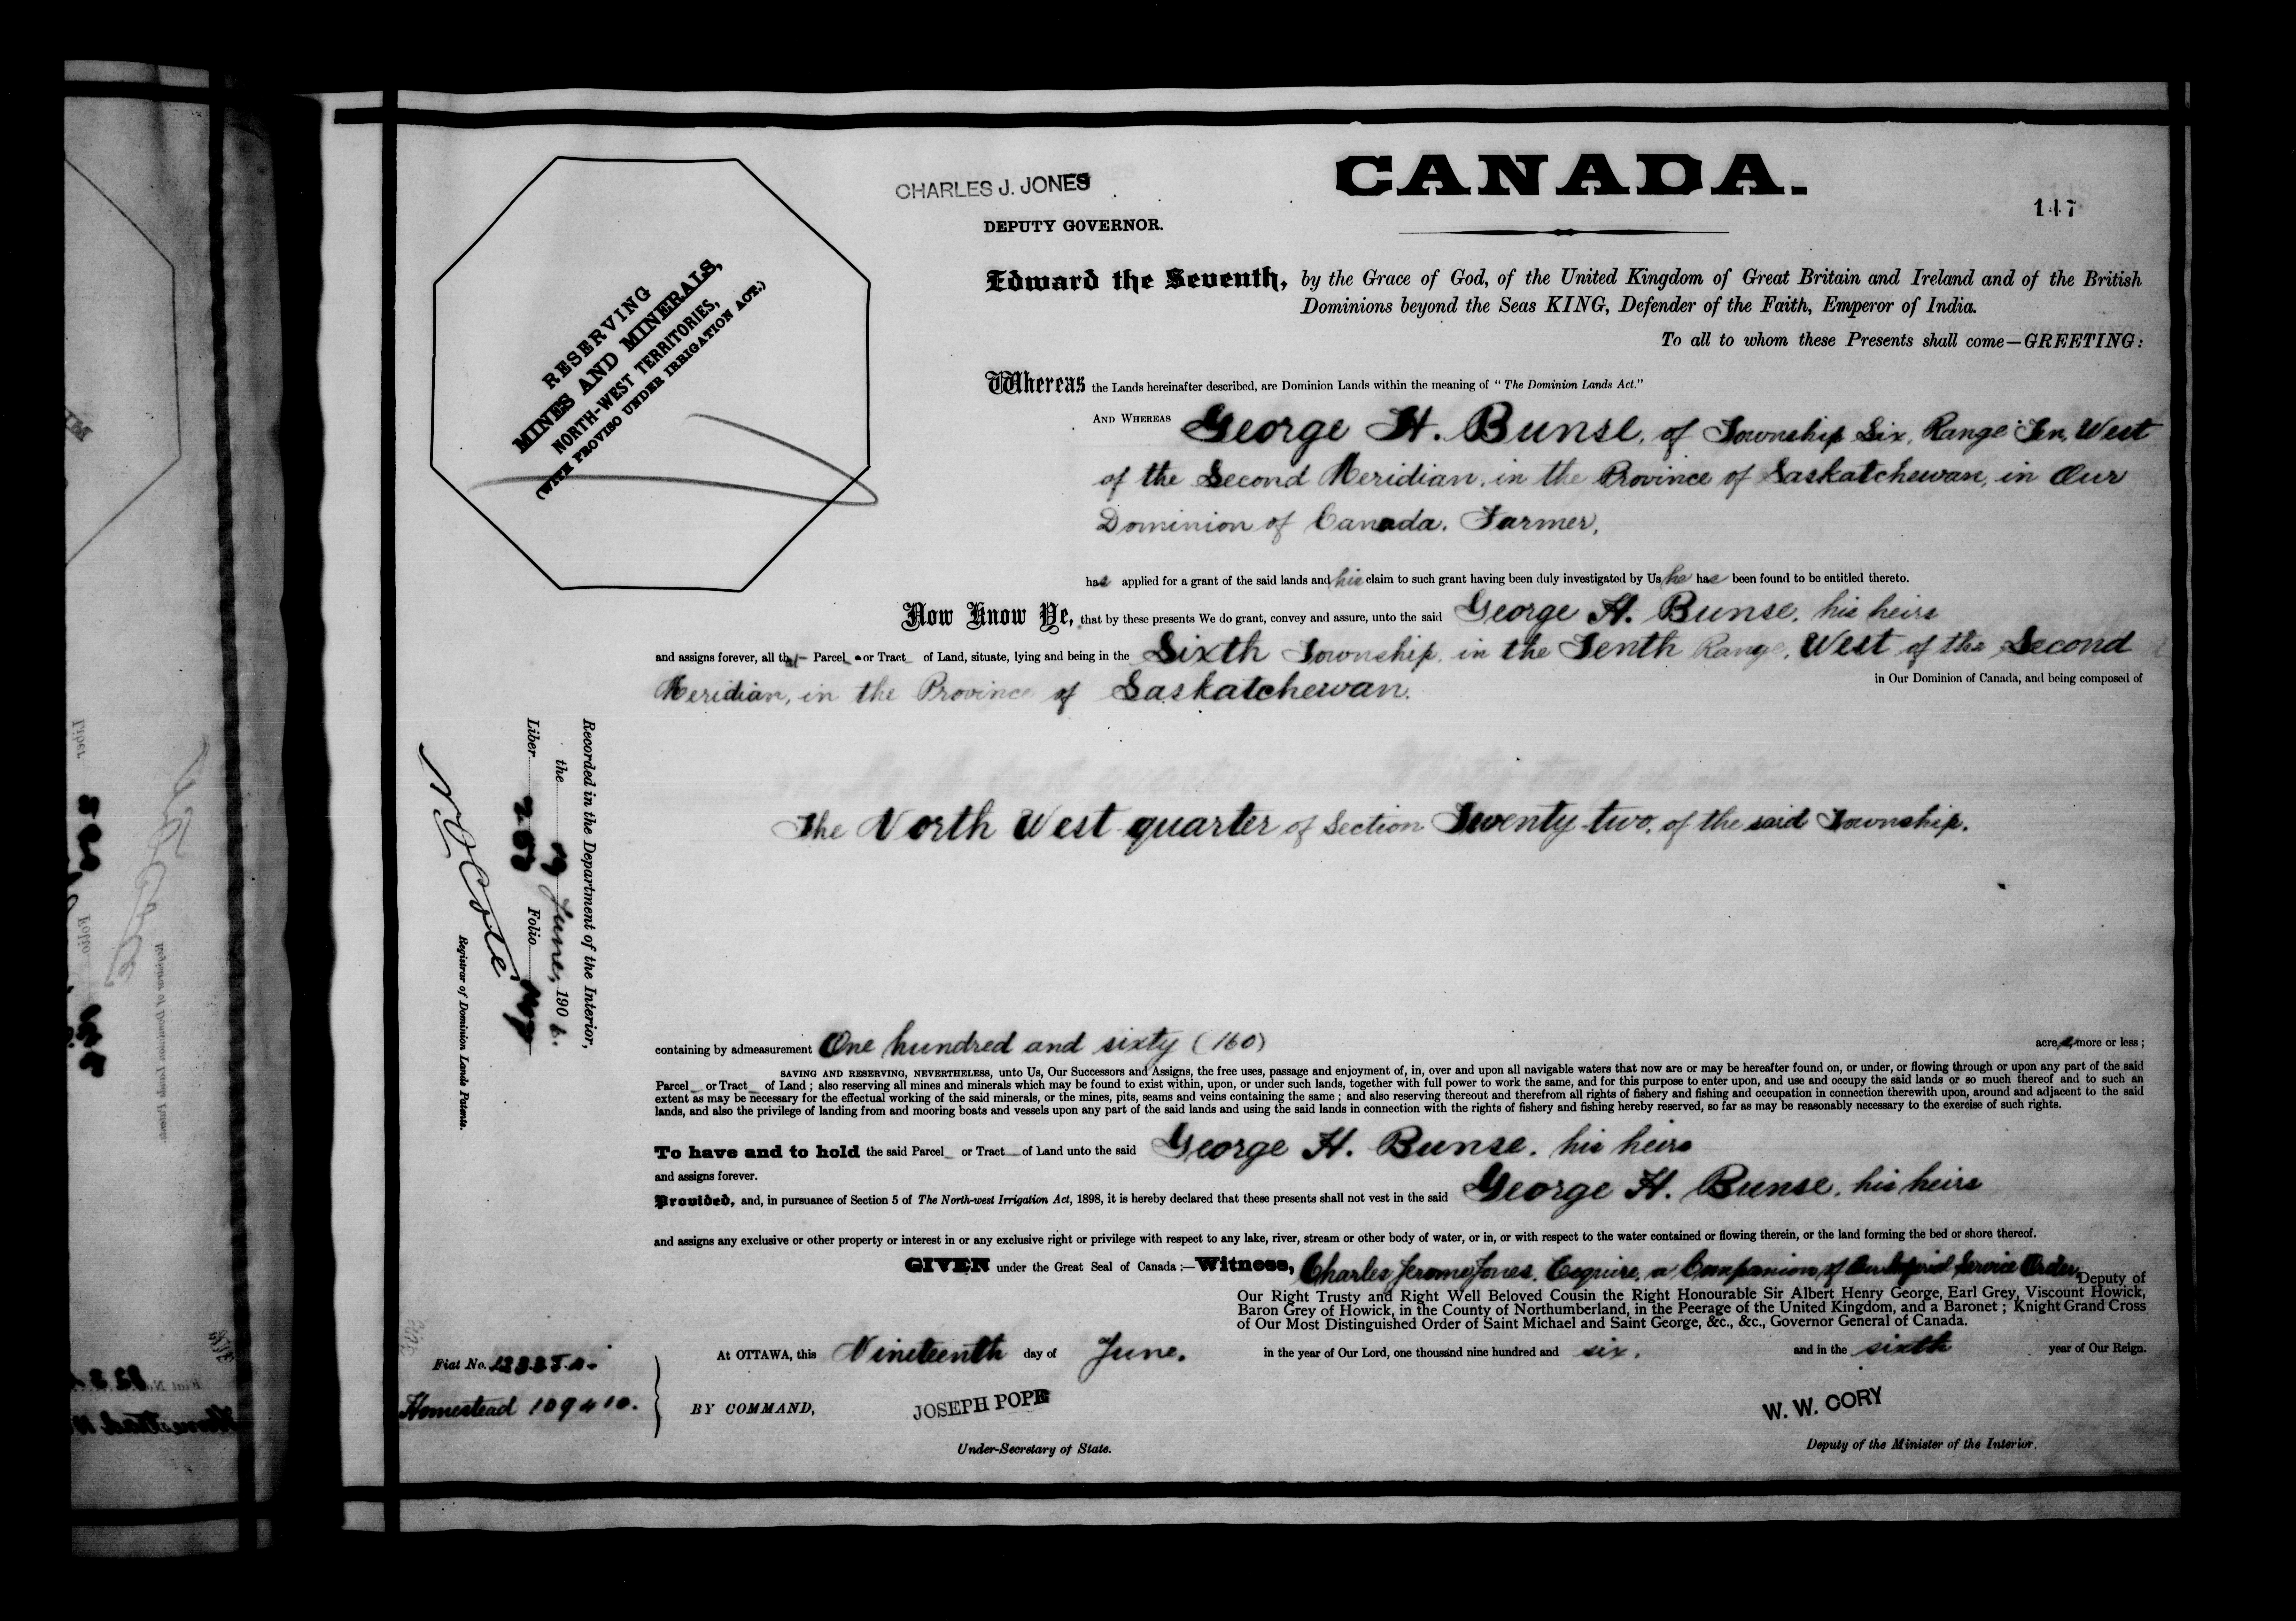 CHARLES J. JONES
DEPUTY GOVERNOR.
CANADA.
147
RESERVING
MINES AND MINERALS,
NORTH-WEST TERRITORIES,
(WITH PROVISO UNDER IRRIGATION ACT.)
Edward the Seventh, by the Grace of God, of the United Kingdom of Great Britain and Ireland and of the British
Dominions beyond the Seas KING, Defender of the Faith, Emperor of India.
To all to whom these Presents shall come—GREETING:
Whereas the Lands hereinafter described, are Dominion Lands within the meaning of "The Dominion Lands Act."
AND WHEREAS George H. Bunse, of Township Six, Range Ten, West
of the Second Meridian, in the Province of Saskatchewan, in Our
Dominion of Canada. Farmer,
has applied for a grant of the said lands and his claim to such grant having been duly investigated by Us he has been found to be entitled thereto.
Now Know Ye, that by these presents We do grant, convey and assure, unto the said George H. Bunse, his heirs
and assigns forever, all that Parcel or Tract of Land, situate, lying and being in the Sixth Township, in the Tenth Range, West of the Second
Meridian, in the Province of Saskatchewan.
in Our Dominion of Canada, and being composed of
The North West quarter of Section Twenty-two, of the said Township.
Recorded in the Department of the Interior,
the 29 June, 1906.
Liber Folio
N O Coté
Registrar of Dominion Lands Patents.
containing by admeasurement One hundred and sixty (160) acres, more or less;
SAVING AND RESERVING, NEVERTHELESS, unto Us, Our Successors and Assigns, the free uses, passage and enjoyment of, in, over and upon all navigable waters that now are or may be hereafter found on, or under, or flowing through or upon any part of the said
Parcel or Tract of Land; also reserving all mines and minerals which may be found to exist within, upon, or under such lands, together with full power to work the same, and for this purpose to enter upon, and use and occupy the said lands or so much thereof and to such an
extent as may be necessary for the effectual working of the said minerals, or the mines, pits, seams and veins containing the same; and also reserving thereout and therefrom all rights of fishery and fishing and occupation in connection therewith upon, around and adjacent to the said
lands, and also the privilege of landing from and mooring boats and vessels upon any part of the said lands and using the said lands in connection with the rights of fishery and fishing hereby reserved, so far as may be reasonably necessary to the exercise of such rights.
To have and to hold the said Parcel or Tract of Land unto the said George H. Bunse, his heirs
and assigns forever.
Provided, and, in pursuance of Section 5 of The North-west Irrigation Act, 1898, it is hereby declared that these presents shall not vest in the said George H. Bunse, his heirs
and assigns any exclusive or other property or interest in or any exclusive right or privilege with respect to any lake, river, stream or other body of water, or in, or with respect to the water contained or flowing therein, or the land forming the bed or shore thereof.
GIVEN under the Great Seal of Canada:—Witness, Charles Jerome Jones, Esquire, a Companion of Our Imperial Service Order, Deputy of
Our Right Trusty and Right Well Beloved Cousin the Right Honourable Sir Albert Henry George, Earl Grey, Viscount Howick,
Baron Grey of Howick, in the County of Northumberland, in the Peerage of the United Kingdom, and a Baronet; Knight Grand Cross
of Our Most Distinguished Order of Saint Michael and Saint George, &c., &c., Governor General of Canada.
At OTTAWA, this Nineteenth day of June, in the year of Our Lord, one thousand nine hundred and six, and in the sixth year of Our Reign.
Fiat No.
Homestead 109410.
BY COMMAND,
JOSEPH POPE
Under-Secretary of State.
W. W. CORY
Deputy of the Minister of the Interior.